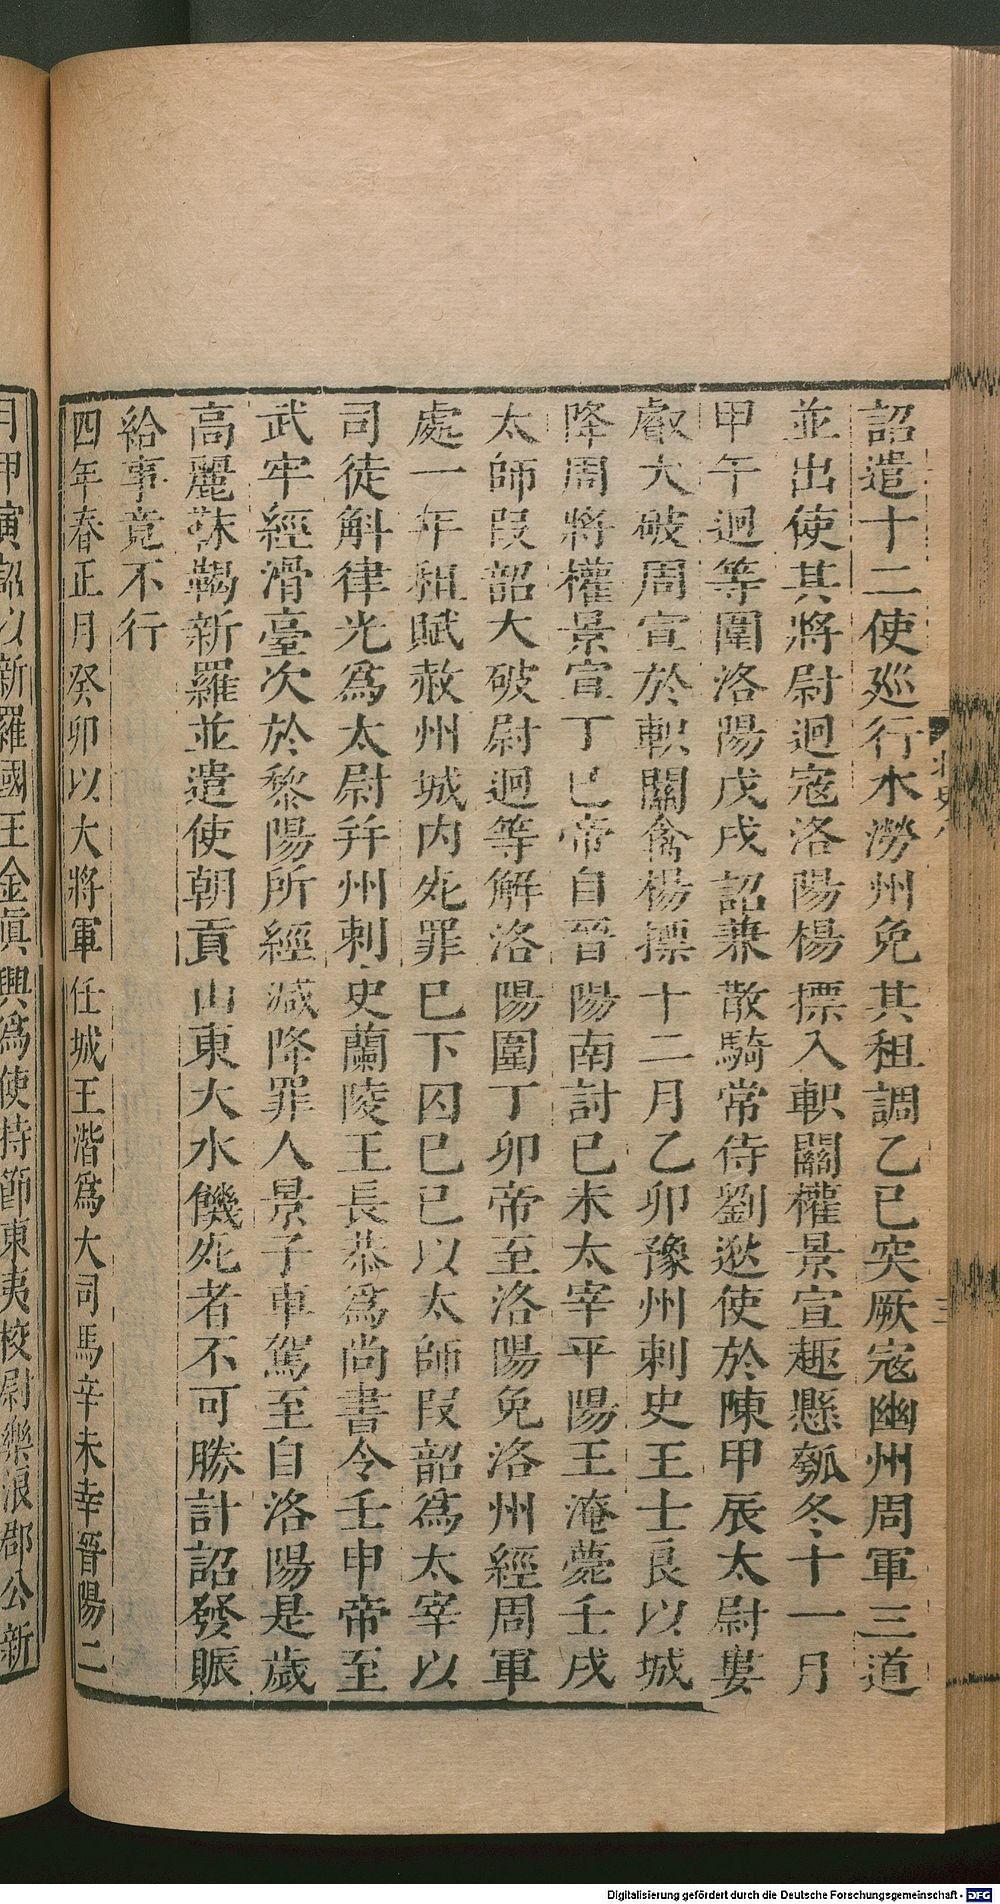 詔遣十二使廵行水澇州免其租調乙巳突厥寇幽州周軍三道
並出使其將尉迥寇洛陽楊摽入軹關權景宣趣懸瓠冬十一月
甲午迥等圍洛陽戊戌詔兼散騎常侍劉逖使於陳甲辰太尉婁
叡大破周宣於軹關禽楊摽十二月乙卯豫州刺史王士良以城
降周將權景宣丁巳帝自晉陽南討己未太宰平陽王淹薨壬戌
太師段韶大破尉迥等解洛陽圍丁卯帝至洛陽免洛州經周軍
處一年租賦赦州城内死罪已下囚己巳以太師段韶爲太宰以
司徒斛律光爲太尉并州刺史蘭陵王長恭爲尚書令壬申帝至
武牢經滑臺次於黎陽所經減降罪人景子車駕至自洛陽是歲
高麗靺鞨新羅並遣使朝貢山東大水饑死者不可勝計詔發賑
給事竟不行
四年春正月癸卯以大將軍任城王湝爲大司馬辛未幸晉陽二
月甲寅詔以新羅國王金真興爲使持節東夷校尉樂浪郡公新
Digitalisierung gefördert durch die Deutsche Forschungsgemeinschaft - DFG